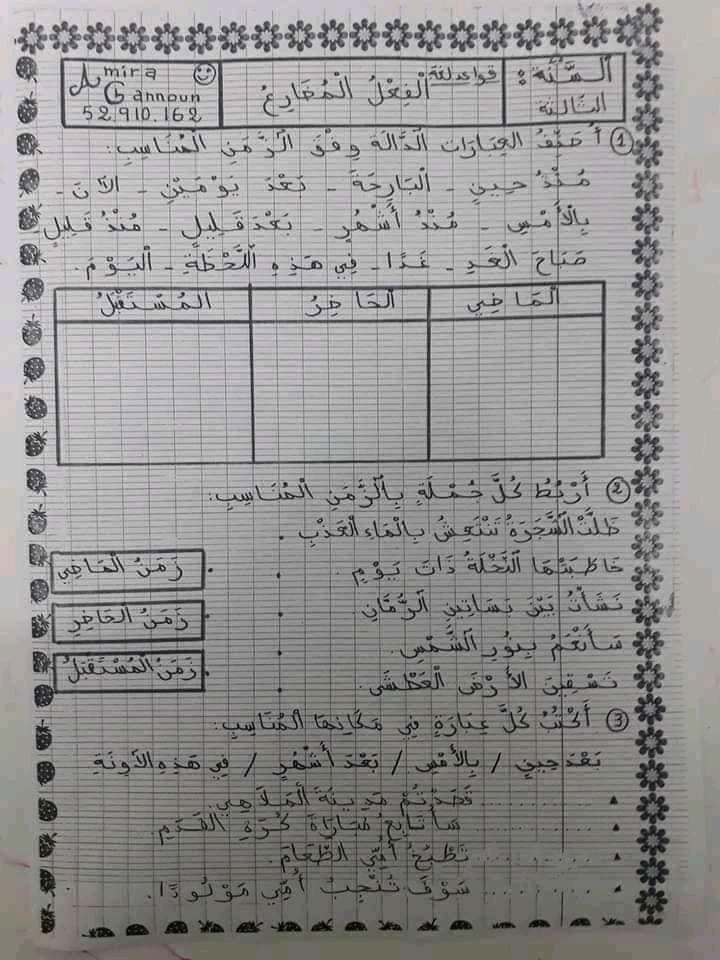 السَّنَة: الثالثة
قواعد لغة الْفِعْلُ الْمُضَارِعُ
Amira Gannoun
52.910.162
① أُصَنِّفُ العِبَارَاتِ الدَّالَةَ وِفْقَ الزَّمَنِ الْمُنَاسِبِ:
مُنْذُ حِينٍ - الْبَارِحَةَ - بَعْدَ يَوْمَيْنِ - الآنَ -
بِالأَمْسِ - مُنْذُ أَشْهُرٍ - بَعْدَ قَلِيلٍ - مُنْذُ قَلِيلٍ
صَبَاحَ الْغَدِ - غَدًا - فِي هَذِهِ اللَّحْظَةِ - الْيَوْمَ.
الْمَاضِي الْحَاضِرُ الْمُسْتَقْبَلُ
② أَرْبُطُ كُلَّ جُمْلَةٍ بِالزَّمَنِ الْمُنَاسِبِ:
ظَلَّتْ الشَّجَرَةُ تَنْتَعِشُ بِالْمَاءِ الْعَذْبِ .
خَاطَبَتْهَا النَّخْلَةُ ذَاتَ يَوْمٍ .
نَشَأْتُ بَيْنَ بَسَاتِينِ الرُّمَّانِ .
سَأَنْعَمُ بِنُورِ الشَّمْسِ .
تَسْقِينَ الأَرْضَ الْعَطْشَى .
زَمَنُ الْمَاضِي
زَمَنُ الحَاضِرِ
زَمَنُ الْمُسْتَقْبَلُ
③ أَكْتُبُ كُلَّ عِبَارَةٍ فِي مَكَانِهَا الْمُنَاسِبِ:
بَعْدَ حِينٍ / بِالأَمْسِ / بَعْدَ أَشْهُرٍ / فِي هَذِهِ الآوِنَةِ
.......... قَصَدْتُمْ مَدِينَةَ الْمَلَاهِي.
.......... سَأُتَابِعُ مُبَارَاةَ كُرَةِ القَدَمِ.
.......... تَطْبُخُ أُمِّي الطَّعَامَ.
.......... سَوْفَ تُنْجِبُ أُمِّي مَوْلُودًا.